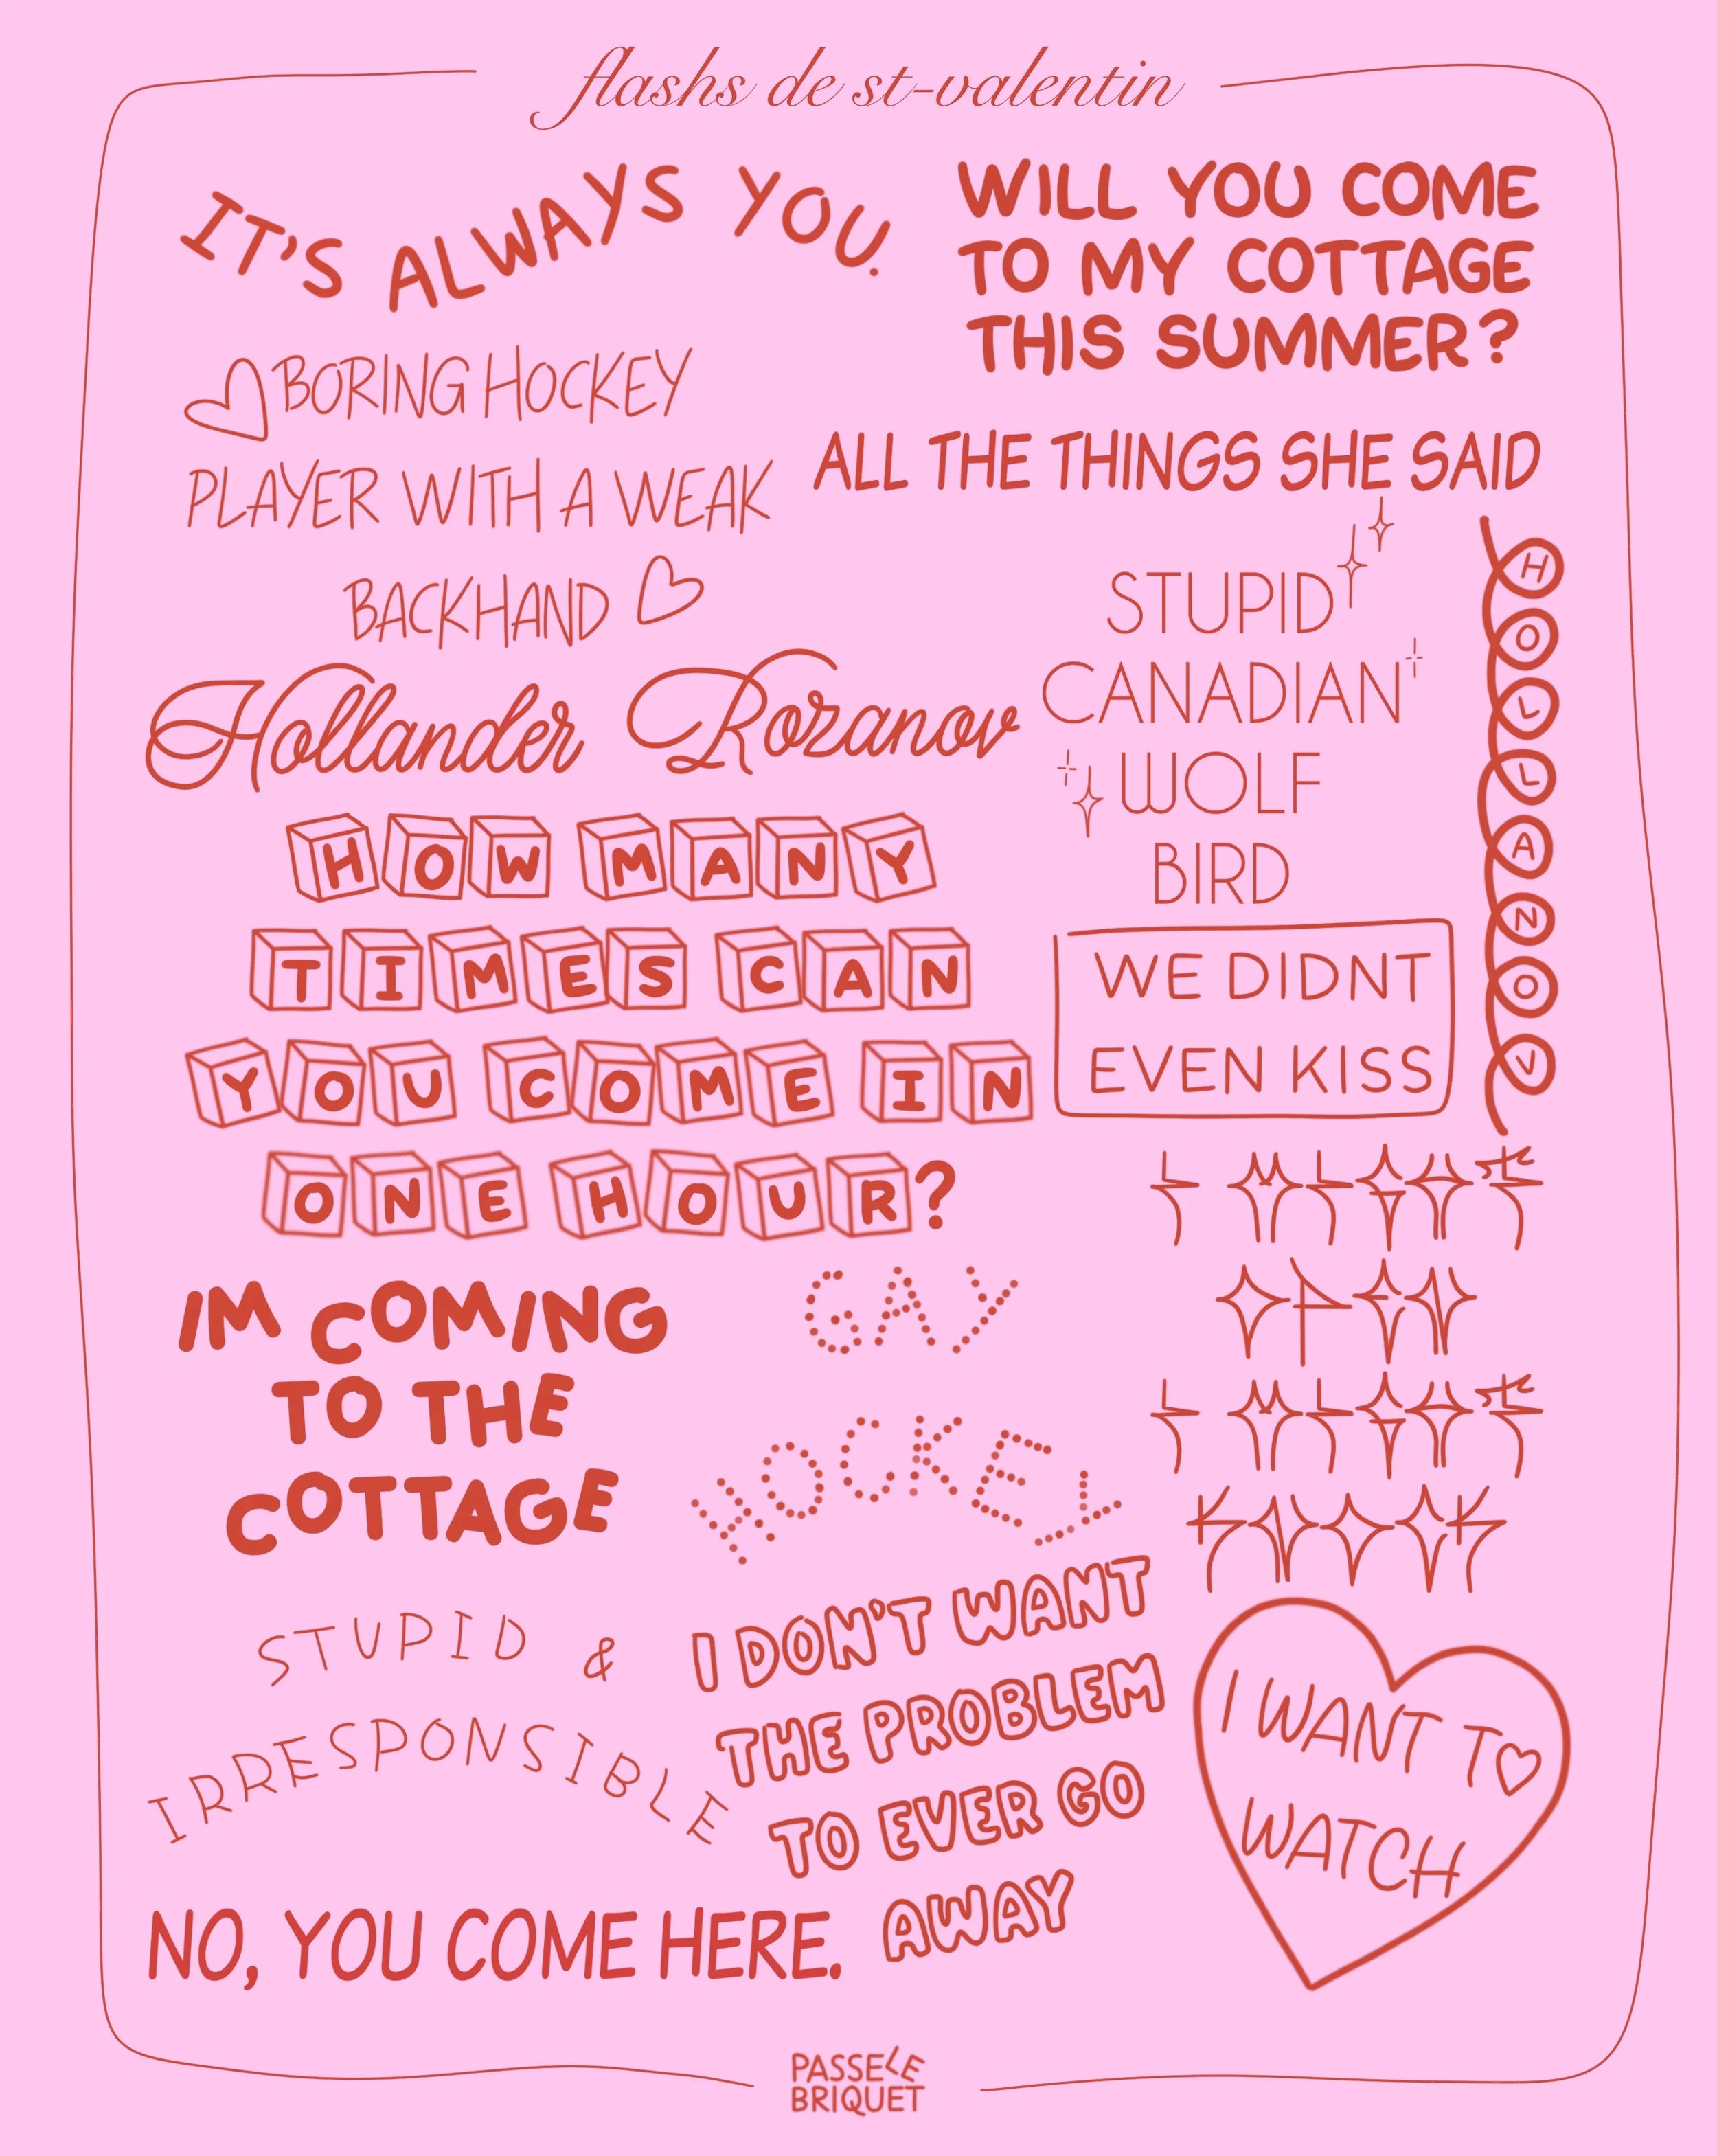 flashs de st-valentin
IT'S ALWAYS YOU.
WILL YOU COME
TO MY COTTAGE
THIS SUMMER?
BORING HOCKEY
PLAYER WITH A WEAK
BACKHAND
ALL THE THINGS SHE SAID
STUPID
CANADIAN
WOLF
BIRD
HOLLANOV
Hollander Rozanov
HOW MANY
TIMES CAN
YOU COME IN
ONE HOUR?
WE DIDNT
EVEN KISS
IM COMING
TO THE
COTTAGE
GAY
HOCKEY
STUPID &
IRRESPONSIBLE
I DON'T WANT
THE PROBLEM
TO EVER GO
AWAY
I WANT TO
WATCH
NO, YOU COME HERE.
PASSE LE
BRIQUET